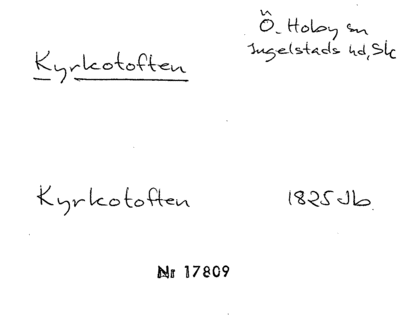 Kyrkotoften
Ö. Hoby sn
Ingelstads hd, Sk
Kyrkotoften
1825 Jb.
Nr 17809